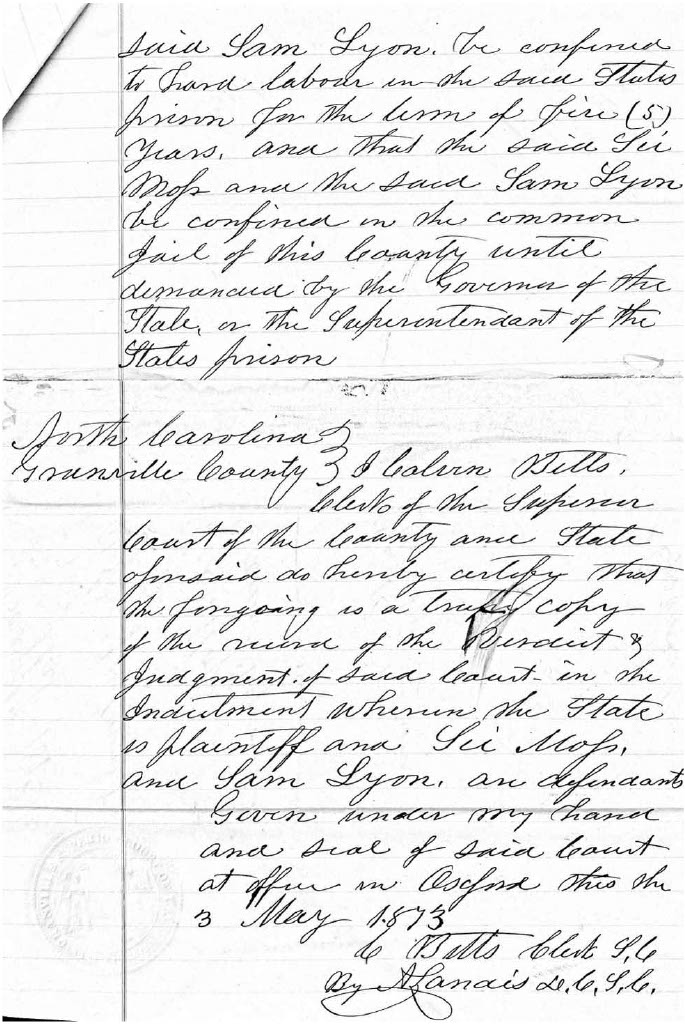 said Sam Lyon. be confined
to hard labour in the said States
prison for the term of five (5)
Years, and that the said Sie
Moss and the said Sam Lyon
be confined in the common
Jail of this County until
demanded by the Governor of the
State, or the Superentendant of the
States prison
North Carolina }
Granville County } I Calvin Betts,
Clerk of the Superior
Court of the County and State
aforesaid do hereby certify that
the foregoing is a true copy
of the record of the Verdict &
Judgment. of said Court in the
Indictment wherein the State
is plaintiff and Sie Moss,
and Sam Lyon. are defendants
Given under my hand
and seal of said Court
at office in Oxford this the
3 May 1873
C Betts Clerk S,C
By A Landis D.C.S.C.